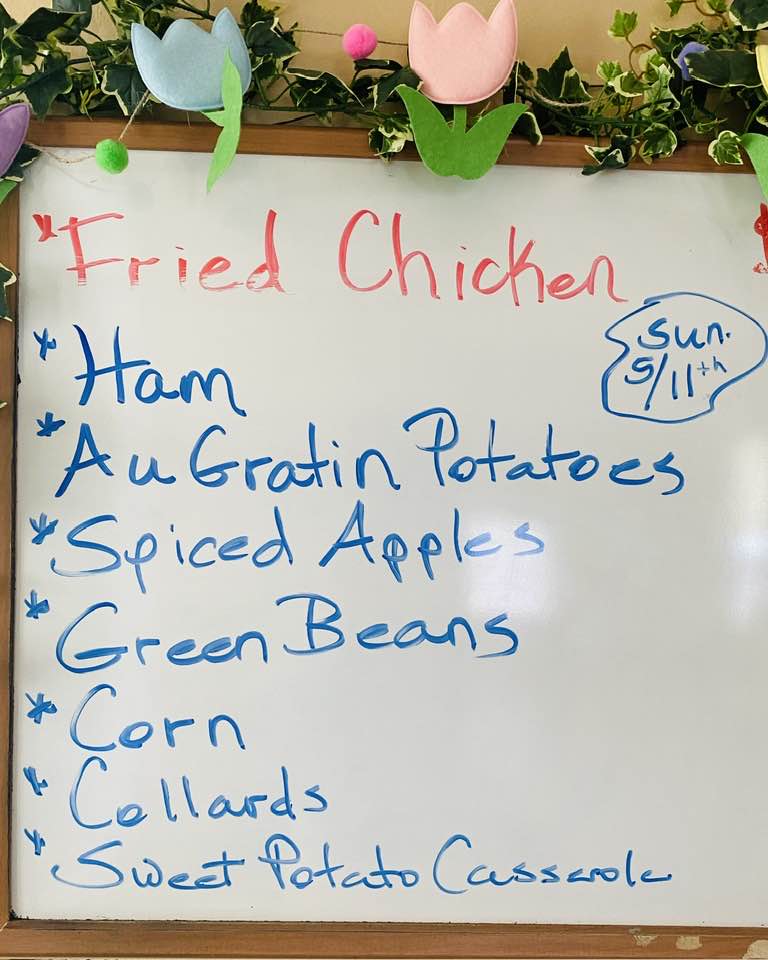 *Fried Chicken
*Ham
Sun.
5/11th
*Au Gratin Potatoes
*Spiced Apples
*Green Beans
*Corn
*Collards
*Sweet Potato Casserole